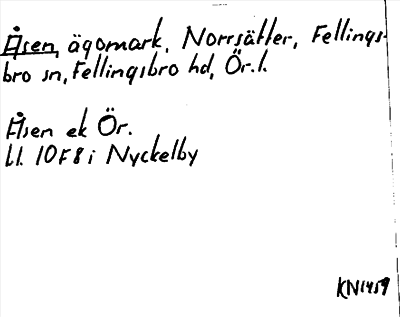 Åsen, ägomark, Norrsätter, Fellings-
bro sn, Fellingsbro hd, Ör. l.
Åsen ek Ör.
Ll. 10F8i Nyckelby
KN1459